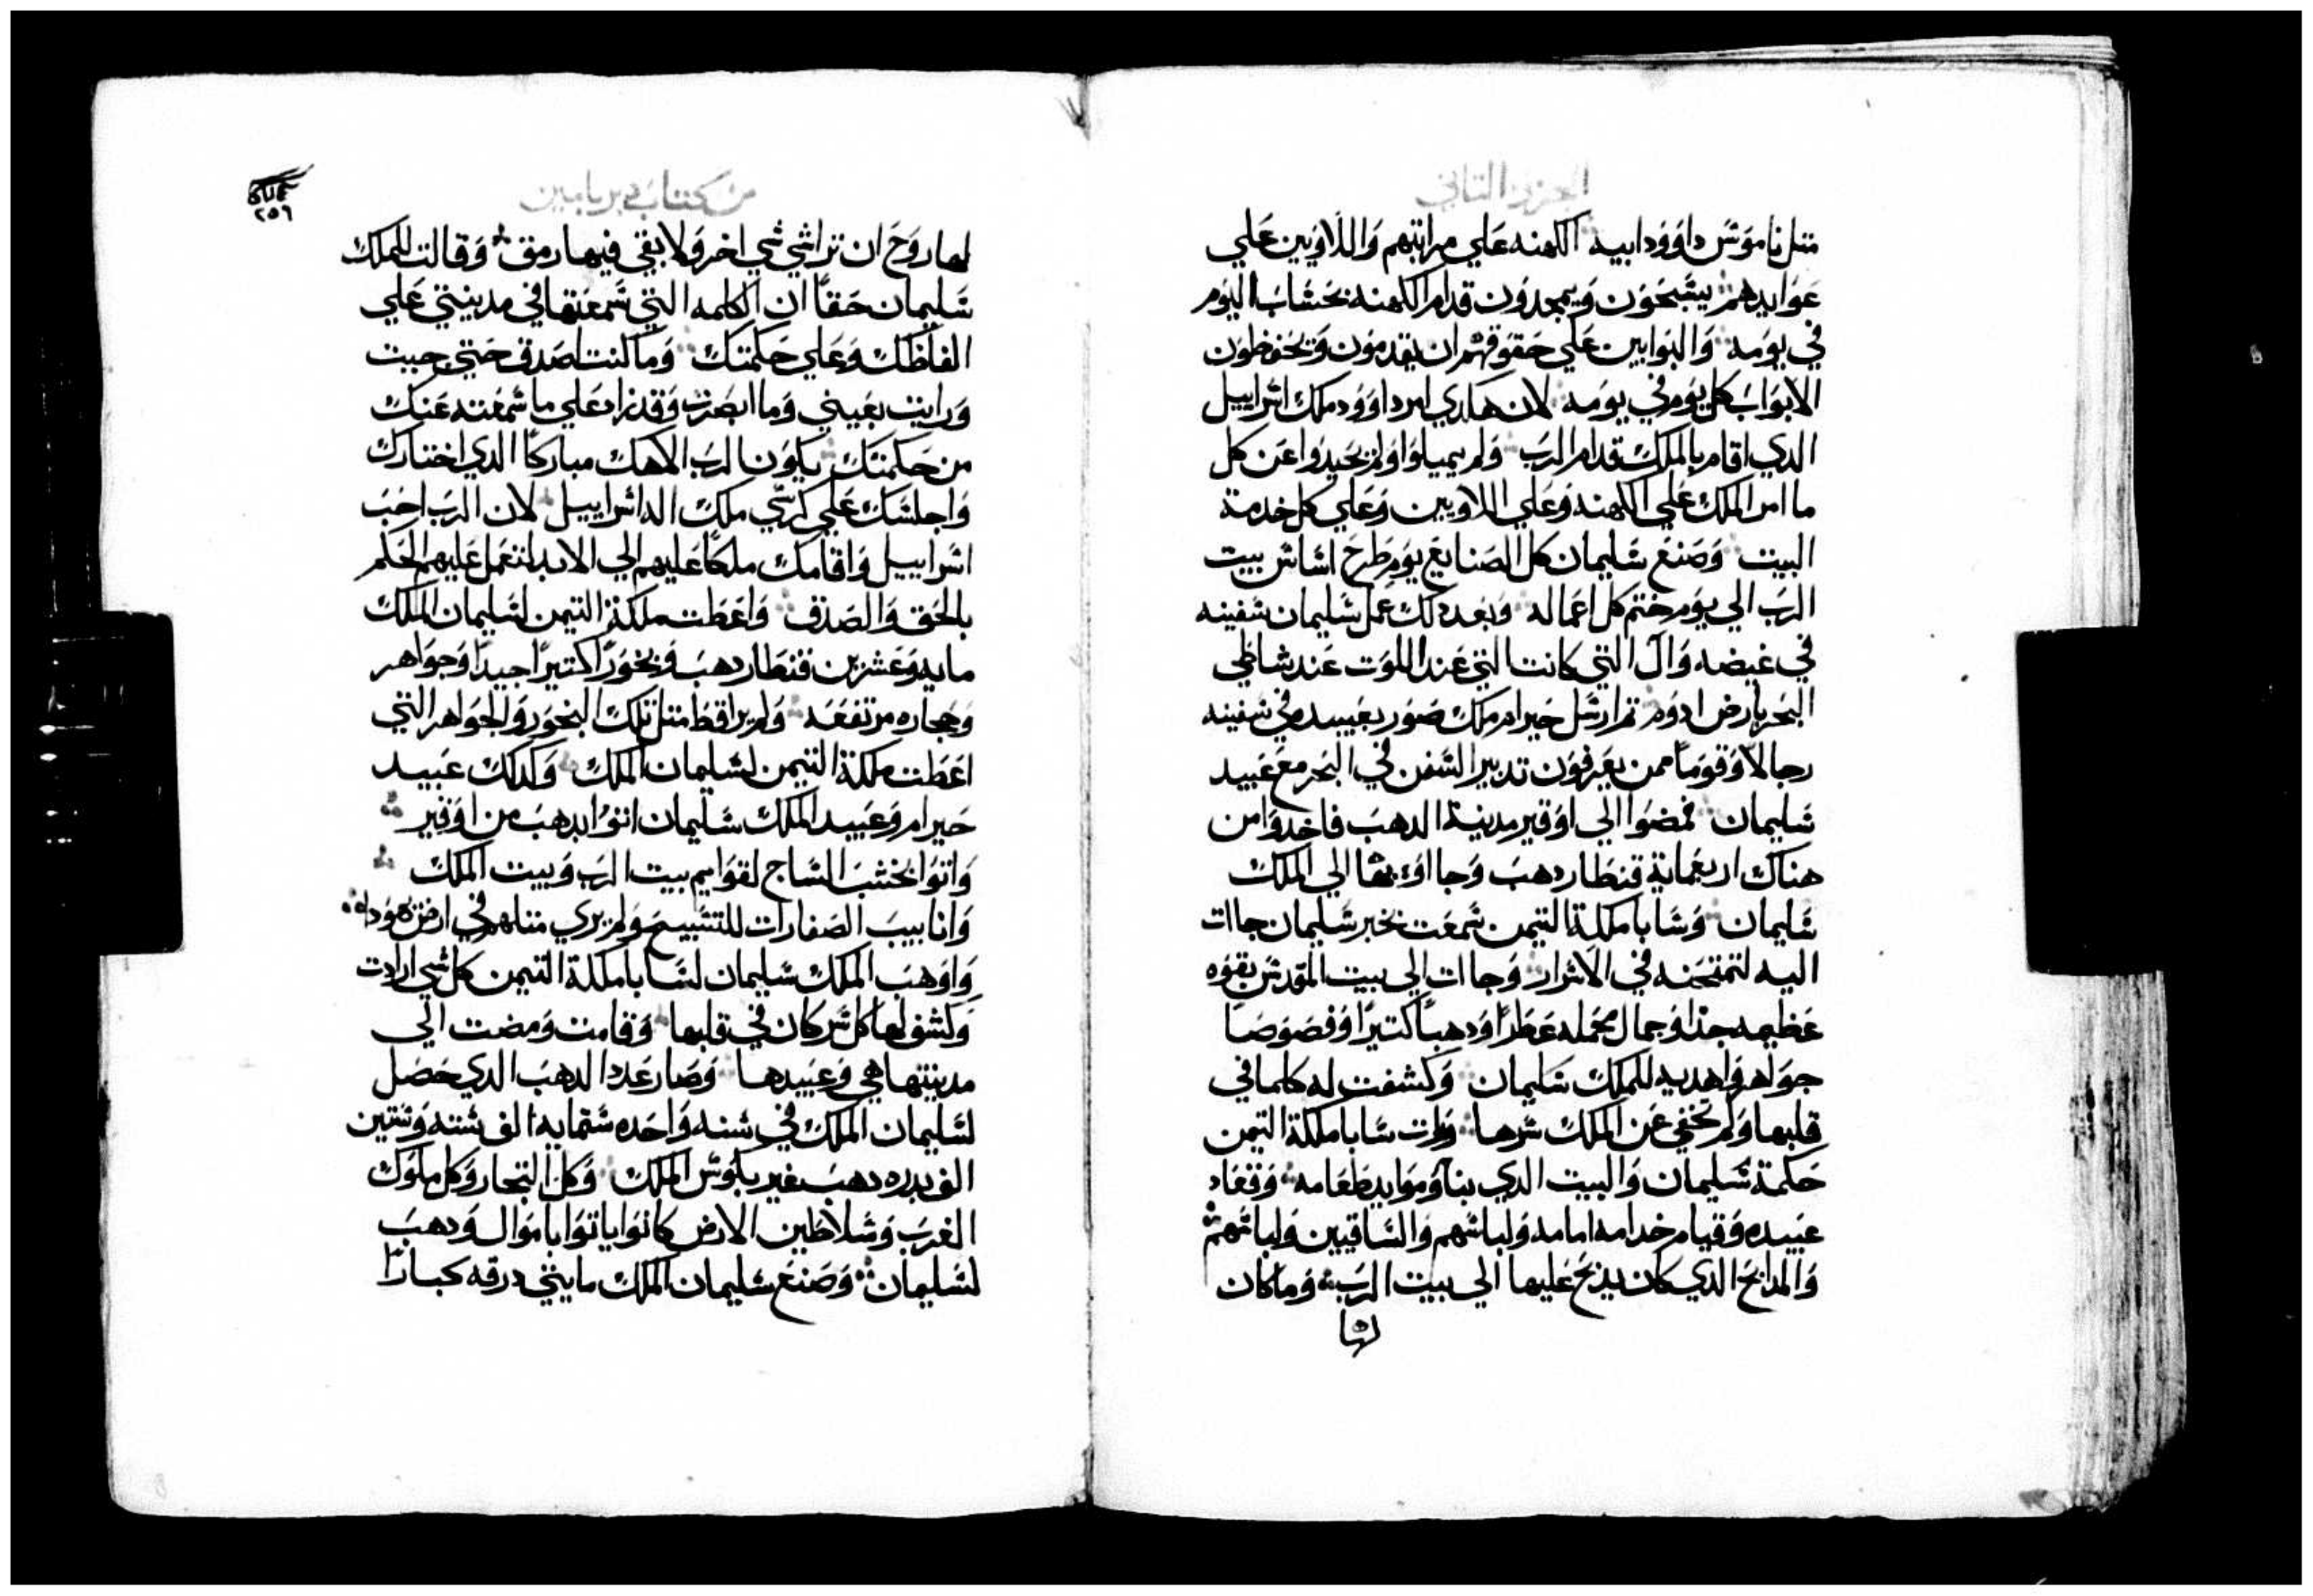 الجزو التاني
متل ناموس داوود ابيه الكهنه علي مراتبهم واللاويين علي
عوايدهم يسبحون ويمجدون قدام الكهنه بحساب اليوم
في يومه والبوابين علي حقوقهم ان يقدمون ويحفظون
الابواب كل يوم في يومه لان هكدي امر داوود ملك اسراييل
الدي اقام بالملك قدام الرب ولم يميلوا ولم يحيدوا عن كل
ما امر الملك علي الكهنه وعلي اللاويين وعلي كل خدمة
البيت وصنع سليمان كل الصنايع يوم طرح اساس بيت
الرب الي يوم ختم كل اعماله وبعد دلك عمل سليمان سفينه
في غيضه وال التي كانت التي عند اللوت عند شاطي
البحر بارض ادوم تم ارسل حيرام ملك صور بعبيده في سفينه
رجالا وقوما ممن يعرفون تدبير السفن في البحر مع عبيد
سليمان فمضوا الي اوقير مدينة الدهب فاخدوا من
هناك اربعماية قنطار دهب وجااو بها الي الملك
سليمان وسابا ملكة التيمن سمعت بخبر سليمان جاات
اليه لتمتحنه في الاسرار وجاات الي بيت المقدس بقوه
عظيمه جدا وجمال محمله عطرا ودهبا كتيرا وفصوصا
جواهر واهديه للملك سليمان وكشفت له كلما في
قلبها ولم تخفي عن الملك سرها ورات سابا ملكة التيمن
حكمة سليمان والبيت الدي بناو وموايد طعامه وقعاد
عبيده وقيام خدامه امامه ولباسهم والساقيين ولباسهم
والمدابح الدي كان يدبح عليها الي بيت الرب وما كان
لها
من كتاب دبريامين
٢٥٦
لها روح ان تراشي شي اخر ولا بقي فيها رمق وقالت للملك
سليمان حقا ان الكلمه التي سمعتها في مدينتي علي
الفاظك وعلي حكمتك وما كنت اصدق حتي جيت
ورايت بعيني وما ابصرت وقد زاد علي ما سمعته عنك
من حكمتك يكون الرب الاهك مباركا الدي اختارك
واجلسك علي كرسي ملك ال اسراييل لان الرب احب
اسراييل واقامك ملكا عليهم الي الابد لتعمل عليهم الحكم
بالحق والصدق واعطت ملكة التيمن لسليمان الملك
مايه وعشرين قنطار دهب وبخورا كتيرا جيدا وجواهر
وحجاره مرتفعه ولم يرا قط متل تلك البخور والجواهر التي
اعطت ملكة التيمن لسليمان الملك وكدلك عبيد
حيرام وعبيد الملك سليمان اتوا بدهب من اوفير
واتوا بخشب الساج لقوايم بيت الرب وبيت الملك
وانابيب الصفارات للتسبيح ولم يري متلهم في ارض يهودا
واوهب الملك سليمان لسابا ملكة التيمن كل شي ارادت
وكشف لها كل سر كان في قلبها وقامت ومضت الي
مدينتها هي وعبيدها وصار عدد الدهب الدي حصل
لسليمان الملك في سنه واحده ستمايه الف سته وستين
الف بدره دهب غير بلوس الملك وكل التجار وكل ملوك
الغرب وسلاطين الارض كانوا ياتوا باموال ودهب
لسليمان وصنع سليمان الملك مايتي درقه كبارا